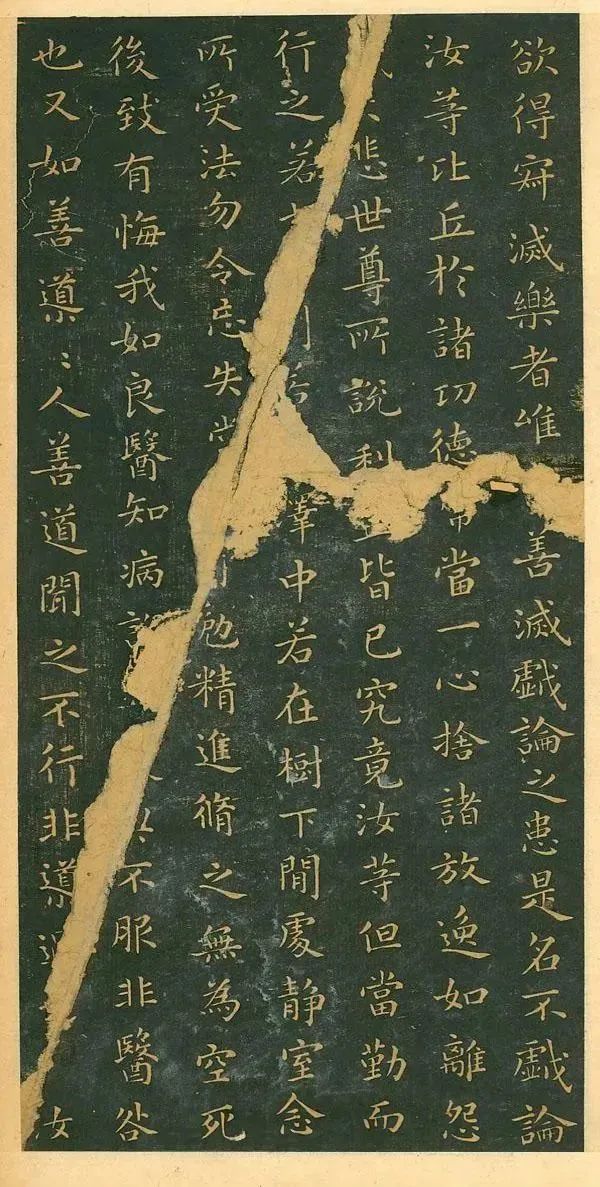 欲得寂滅樂者唯善滅戲論之患是名不戲論
汝等比丘於諸功德常當一心捨諸放逸如離怨
悲世尊所說利皆已究竟汝等但當勤而
行之若於澤中若在樹下閒處靜室念
所受法勿令忘失常勉精進脩之無為空死
後致有悔我如良醫知病說不服非醫咎
也又如善導〻人善道聞之不行非導過汝